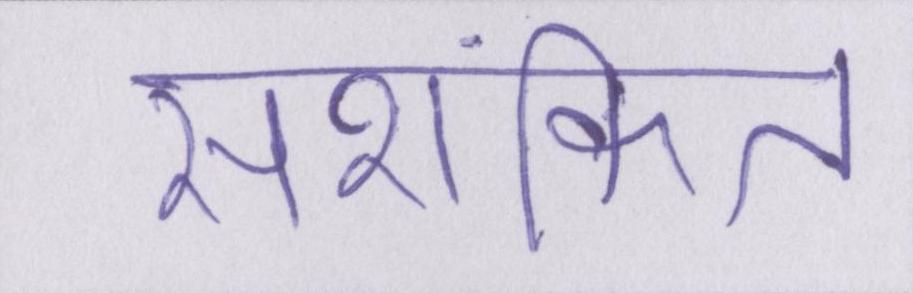 सशंकित